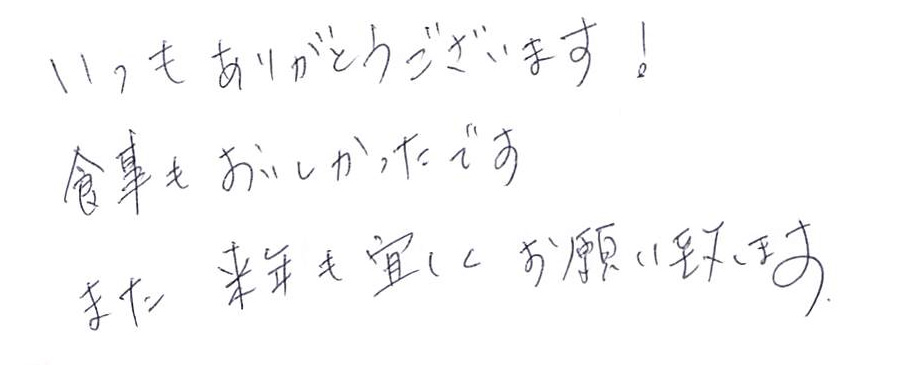 いつもありがとうございます！
食事もおいしかったです
また 来年も宜しくお願い致します.